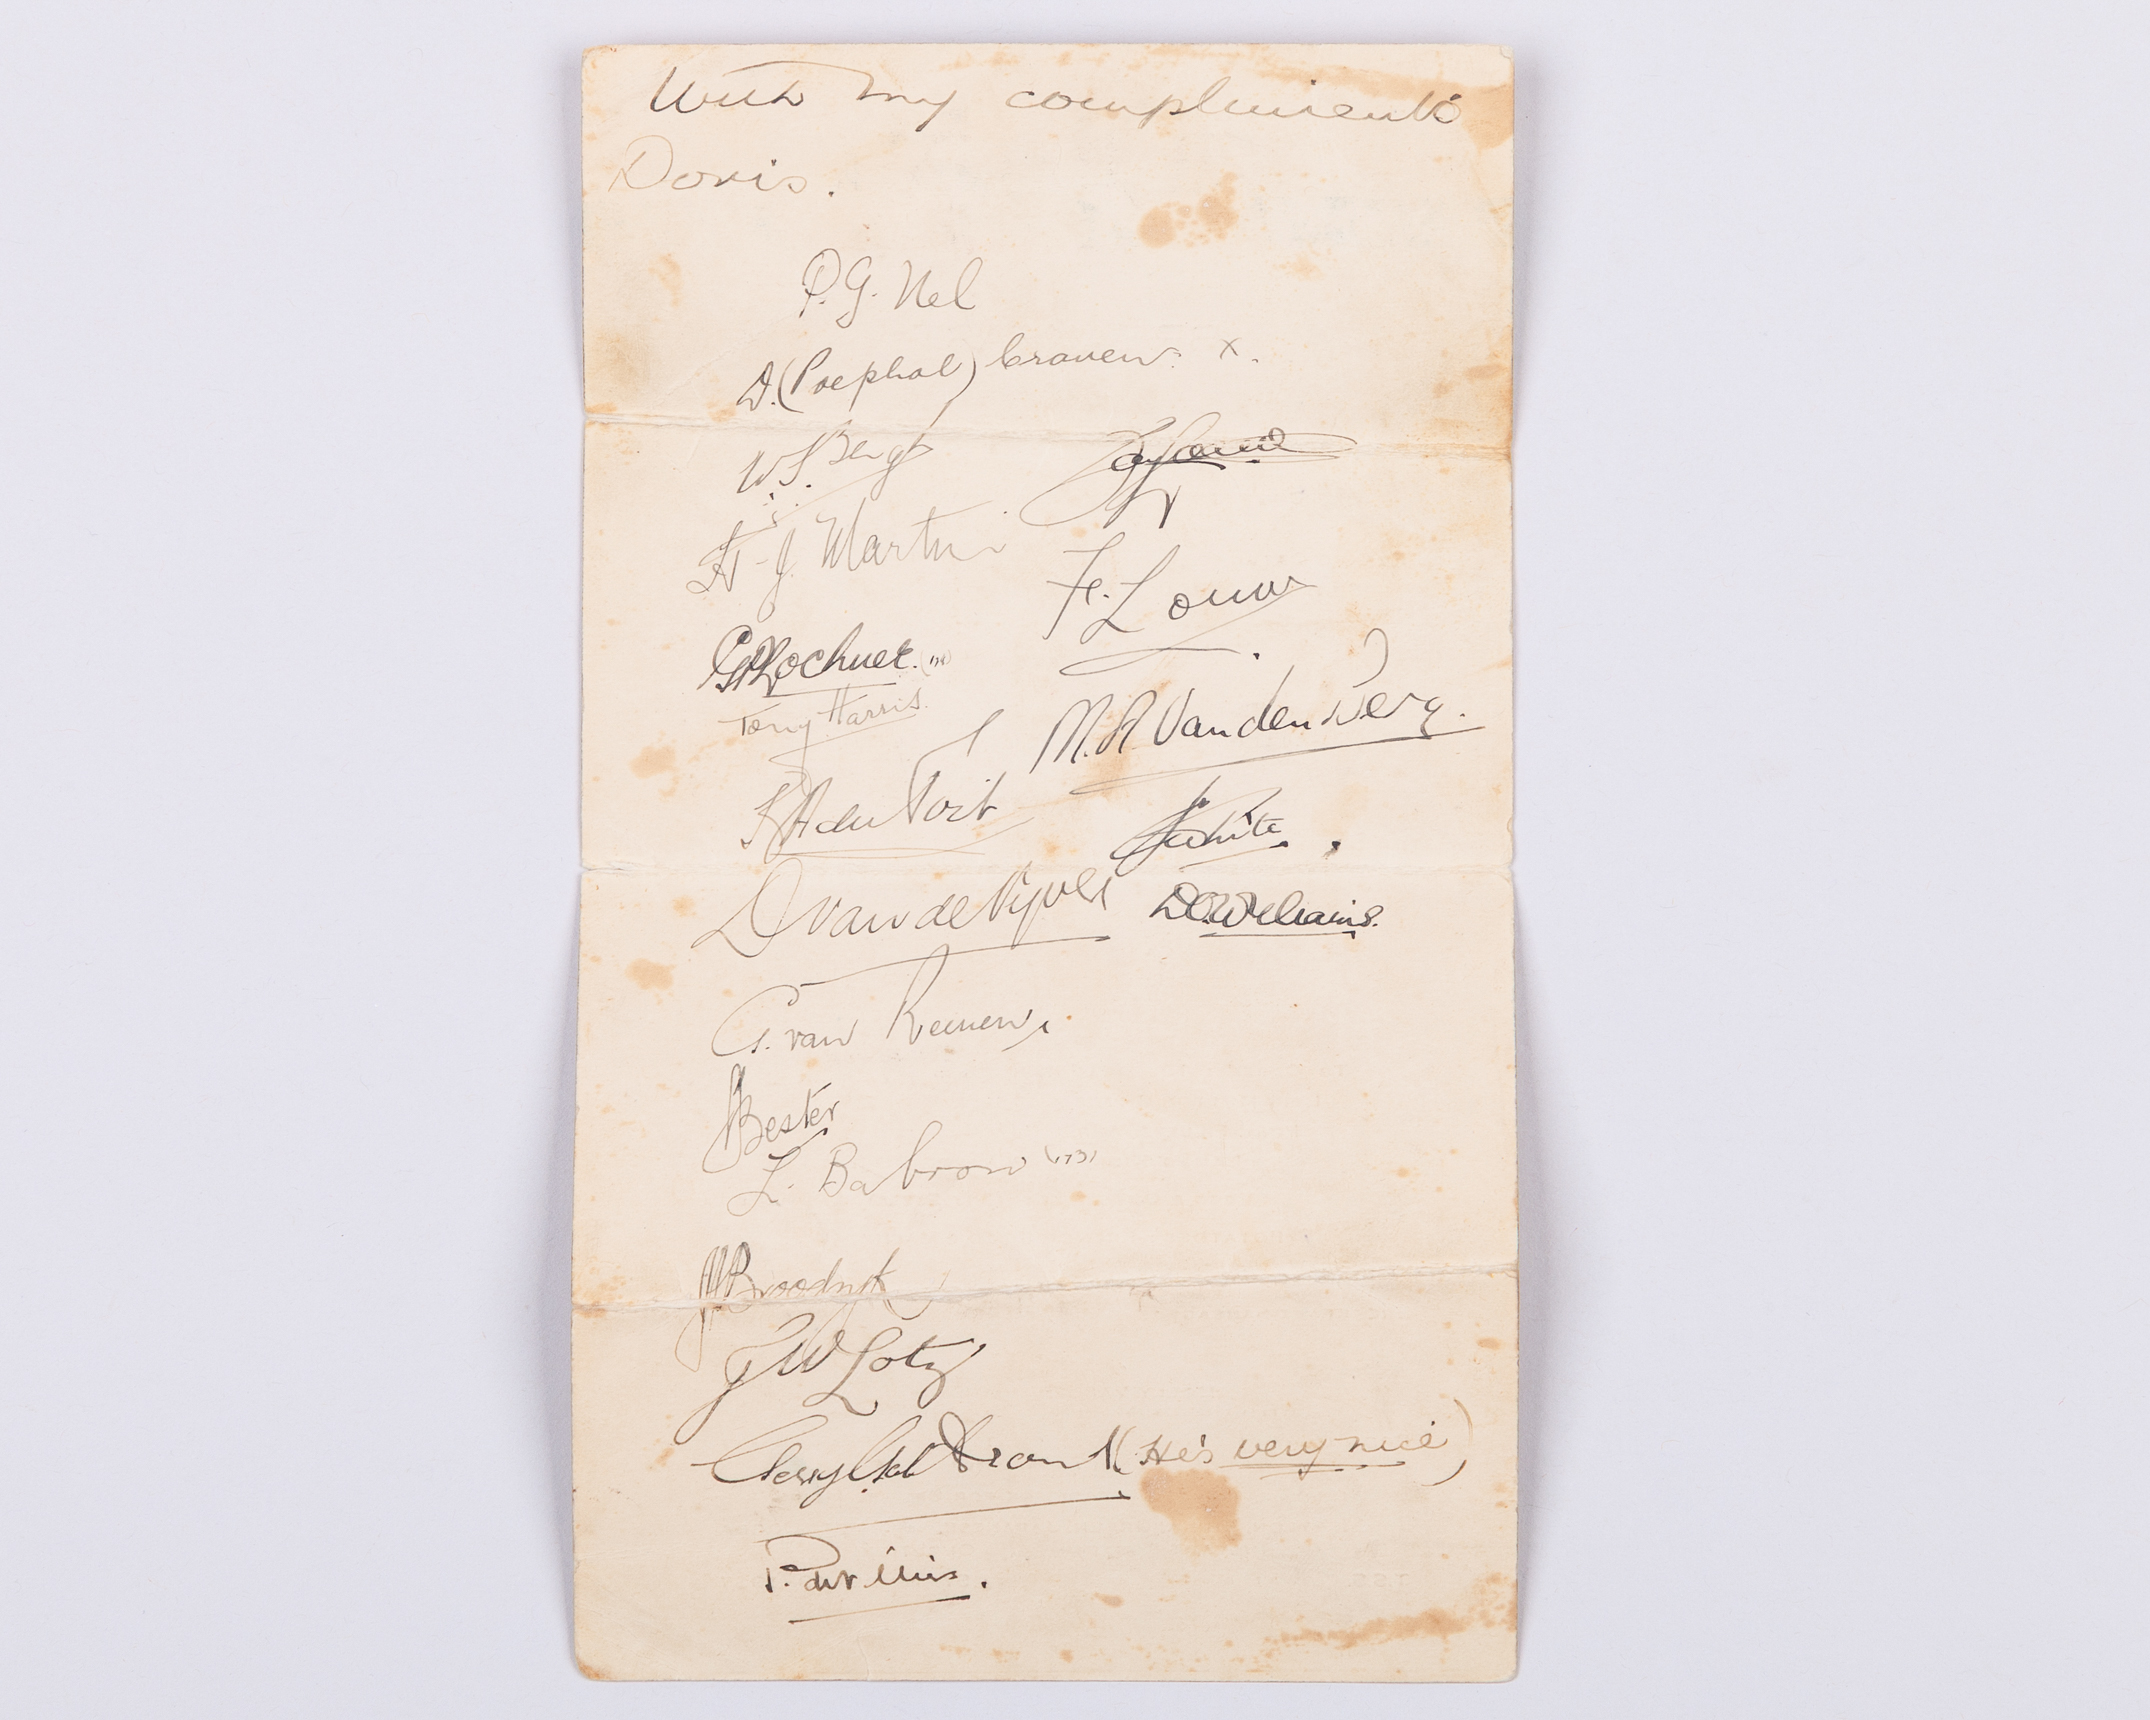 With my compliments
Doris.
P. G. Nel
D. (Poephol) Craven. X.
W. F. Bergh
H. J. Martin
F. Louw
G P Lochner.
Tony Harris.
M. A. Van den Berg.
P A du Toit
J White.
D van de Vyver
D.O. Williams.
G. van Reenen.
J Bester
L. Babrow
J Broodryk
J W Lotz
Ferdy Bergh
Gerry Brand (He's very nice)
P. de Villiers.